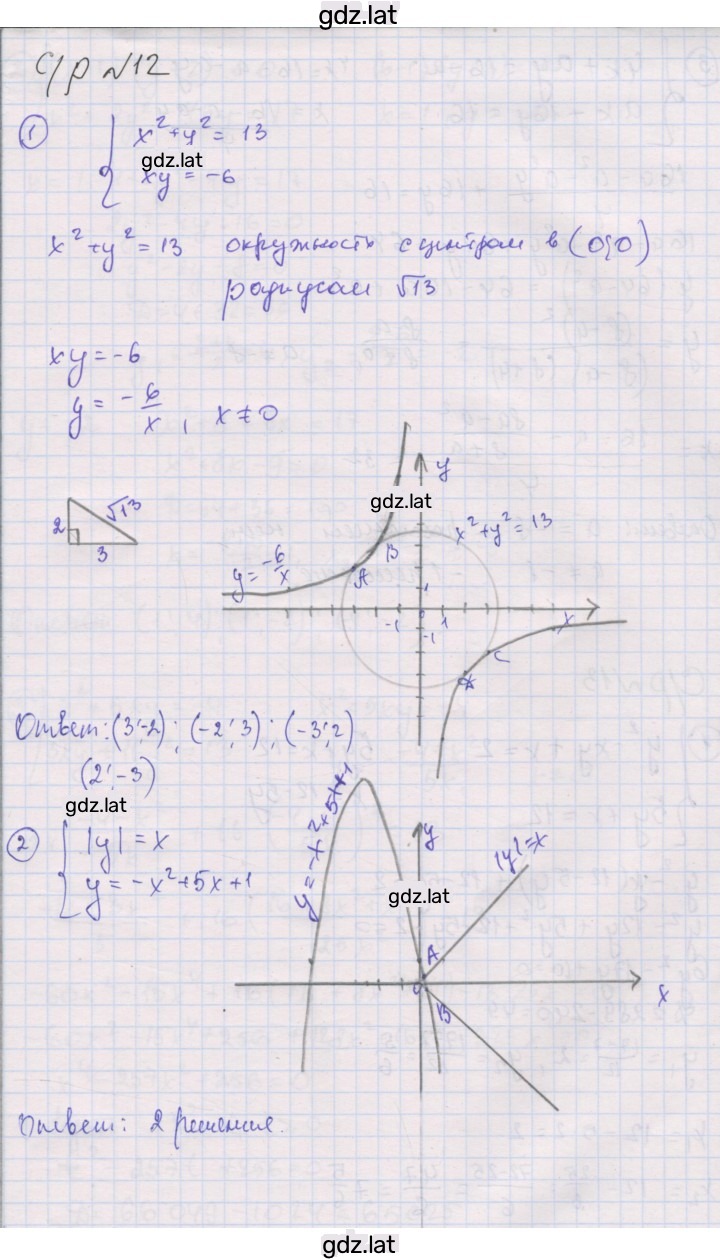 gdz.lat
С/р №12
1
x²+y² = 13
gdz.lat
xy = -6
x²+y² = 13 окружность с центром в (0;0)
радиусом √13
xy = -6
y = -6/x, x ≠ 0
y
gdz.lat
√13
2
3
x²+y² = 13
B
y = -6/x
A
1
-1
0
1
x
-1
C
Ответ: (3;-2); (-2;3); (-3;2)
(2;-3)
gdz.lat
2
|y| = x
y = -x²+5x+1
y = -x²+5x+1
y
|y|=x
gdz.lat
A
0
x
B
Ответ: 2 решения.
gdz.lat